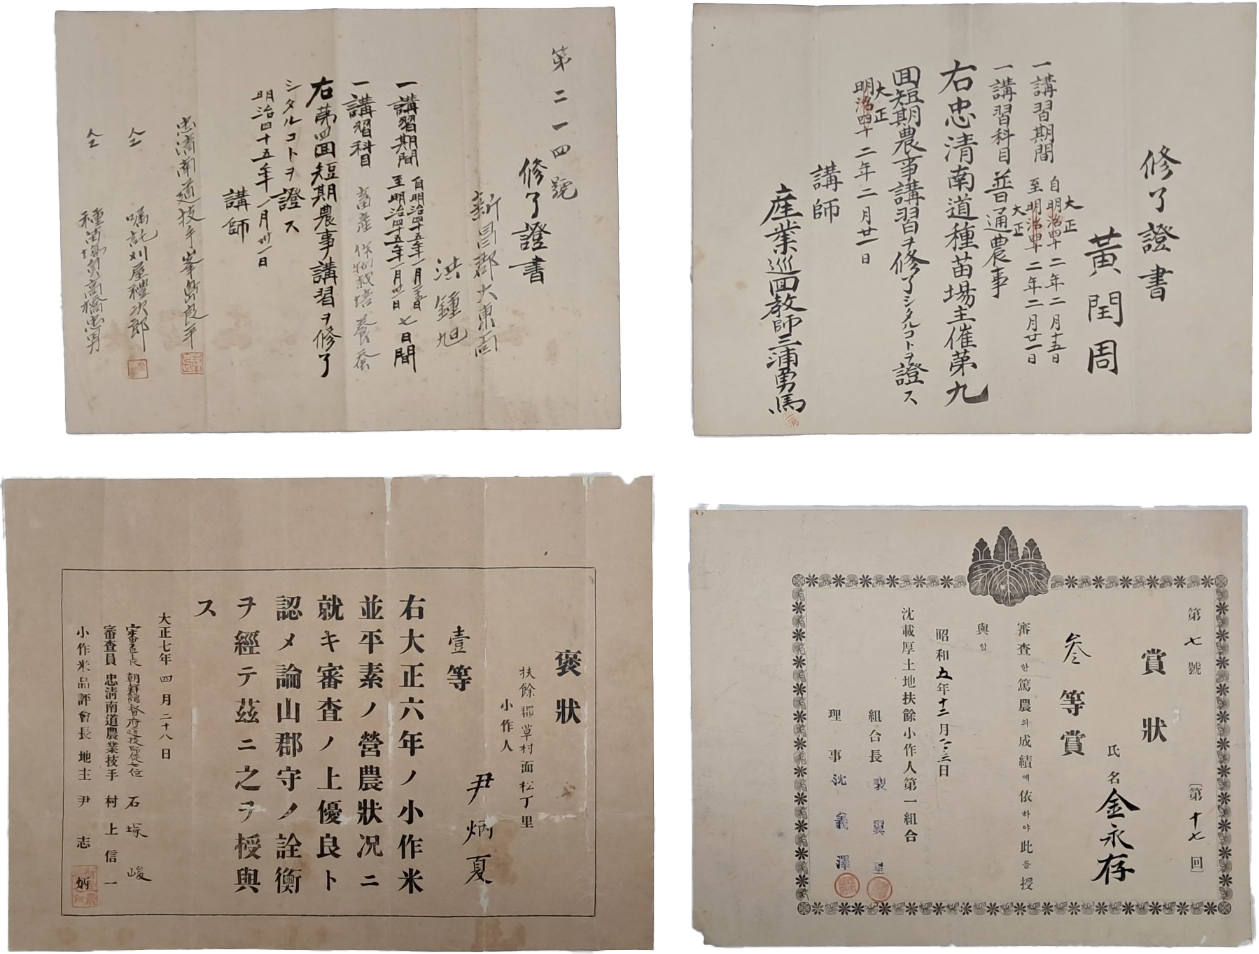 第二一四號
修了證書
新昌郡大東面
洪鍾旭
一講習期間 自明治四十五年一月二十五日 至明治四十五年一月卅一日 七日間
一講習科目 畜産 作物栽培 養蚕
右第四回短期農事講習ヲ修了
シタルコトヲ證ス
明治四十五年一月卅一日
講師
忠清南道技手
仝 嘱託刈屋禮次郎
仝 種苗場
修了證書
黃閏周
一講習期間 自大正明治四十二年二月十五日 至大正明治四十二年二月廿一日
一講習科目 普通農事
右忠清南道種苗場主催第九
回短期農事講習ヲ修了シタルコトヲ證ス
大正明治四十二年二月廿一日
講師
産業巡回教師三浦勇馬
褒狀
扶餘郡草村面松丁里
小作人 尹炳夏
壹等
右大正六年ノ小作米
並平素ノ營農狀況ニ
就キ審查ノ上優良ト
認メ論山郡守ノ詮衡
ヲ經テ茲ニ之ヲ授與
ス
大正七年四月二十八日
審查長 朝鮮總督府道技師從七位 石塚峻
審查員 忠清南道農業技手 村上信一
小作米品評會長 地主 尹志炳
第七號
賞狀
〔第十七回〕
叁等賞
氏名 金永存
審查한篤農의成績에依하야此를授
與함
昭和五年十二月二三日
沈載厚土地扶餘小作人第一組合
組合長 裴翼聖
理事 沈義澤